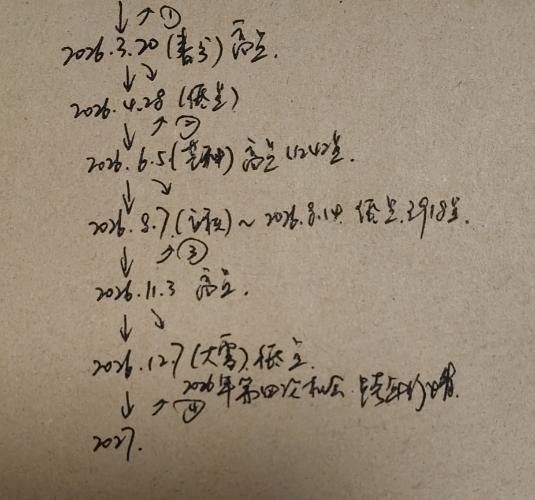 ↓ ↗ ①
2026.3.20 (春分) 高点.
↓ ↘
2026.4.28 (低点)
↓ ↗ ②
2026.6.5 (芒种) 高点 4242点.
↓ ↘
2026.8.7 (立秋) ~ 2026.8.14 低点 3918点.
↓ ↗ ③
2026.11.3 高点.
↓ ↘
2026.12.7 (大雪) 低点.
2026年第四次机会 跨年行情
↓ ↗ ④
2027.